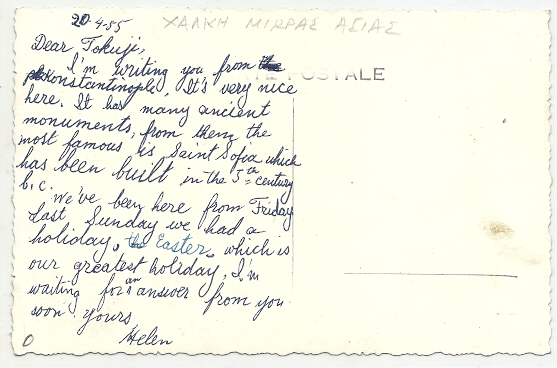 20-4-55 ΧΑΛΚΗ ΜΙΚΡΑΣ ΑΣΙΑΣ
Dear Tokuji,
I'm writing you from
Konstantinople. It's very nice
POSTALE
here. It has many ancient
monuments, from them the
most famous is Saint Sofia which
has been built in the 5th century
b.c.
We've been here from Friday
Last Sunday we had a
holiday, the Easter, which is
our greatest holiday. I'm
waiting for an answer from you
soon yours
Helen
0